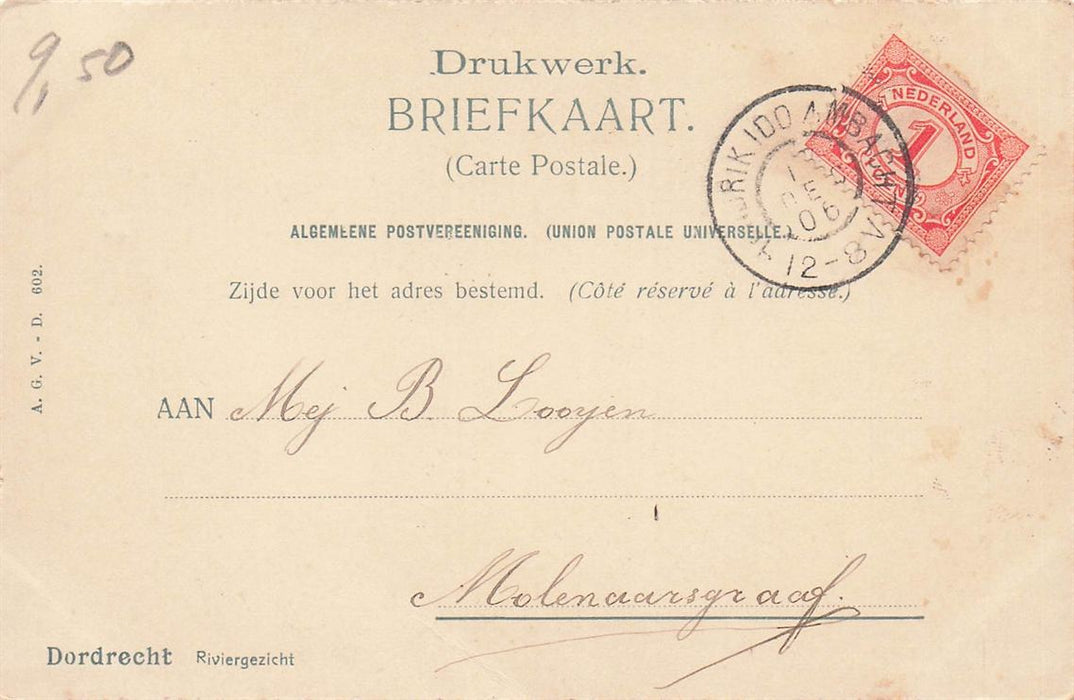 9,50
Drukwerk.
BRIEFKAART.
(Carte Postale.)
NEDERLAND
1
IDO AMBACHT
1
DE
06
12-8V
ALGEMEENE POSTVEREENIGING. (UNION POSTALE UNIVERSELLE.)
Zijde voor het adres bestemd. (Côté réservé à l'adresse.)
A. G. V. - D. 602.
AAN Mej B. Looyen
Molenaarsgraaf.
Dordrecht Riviergezicht